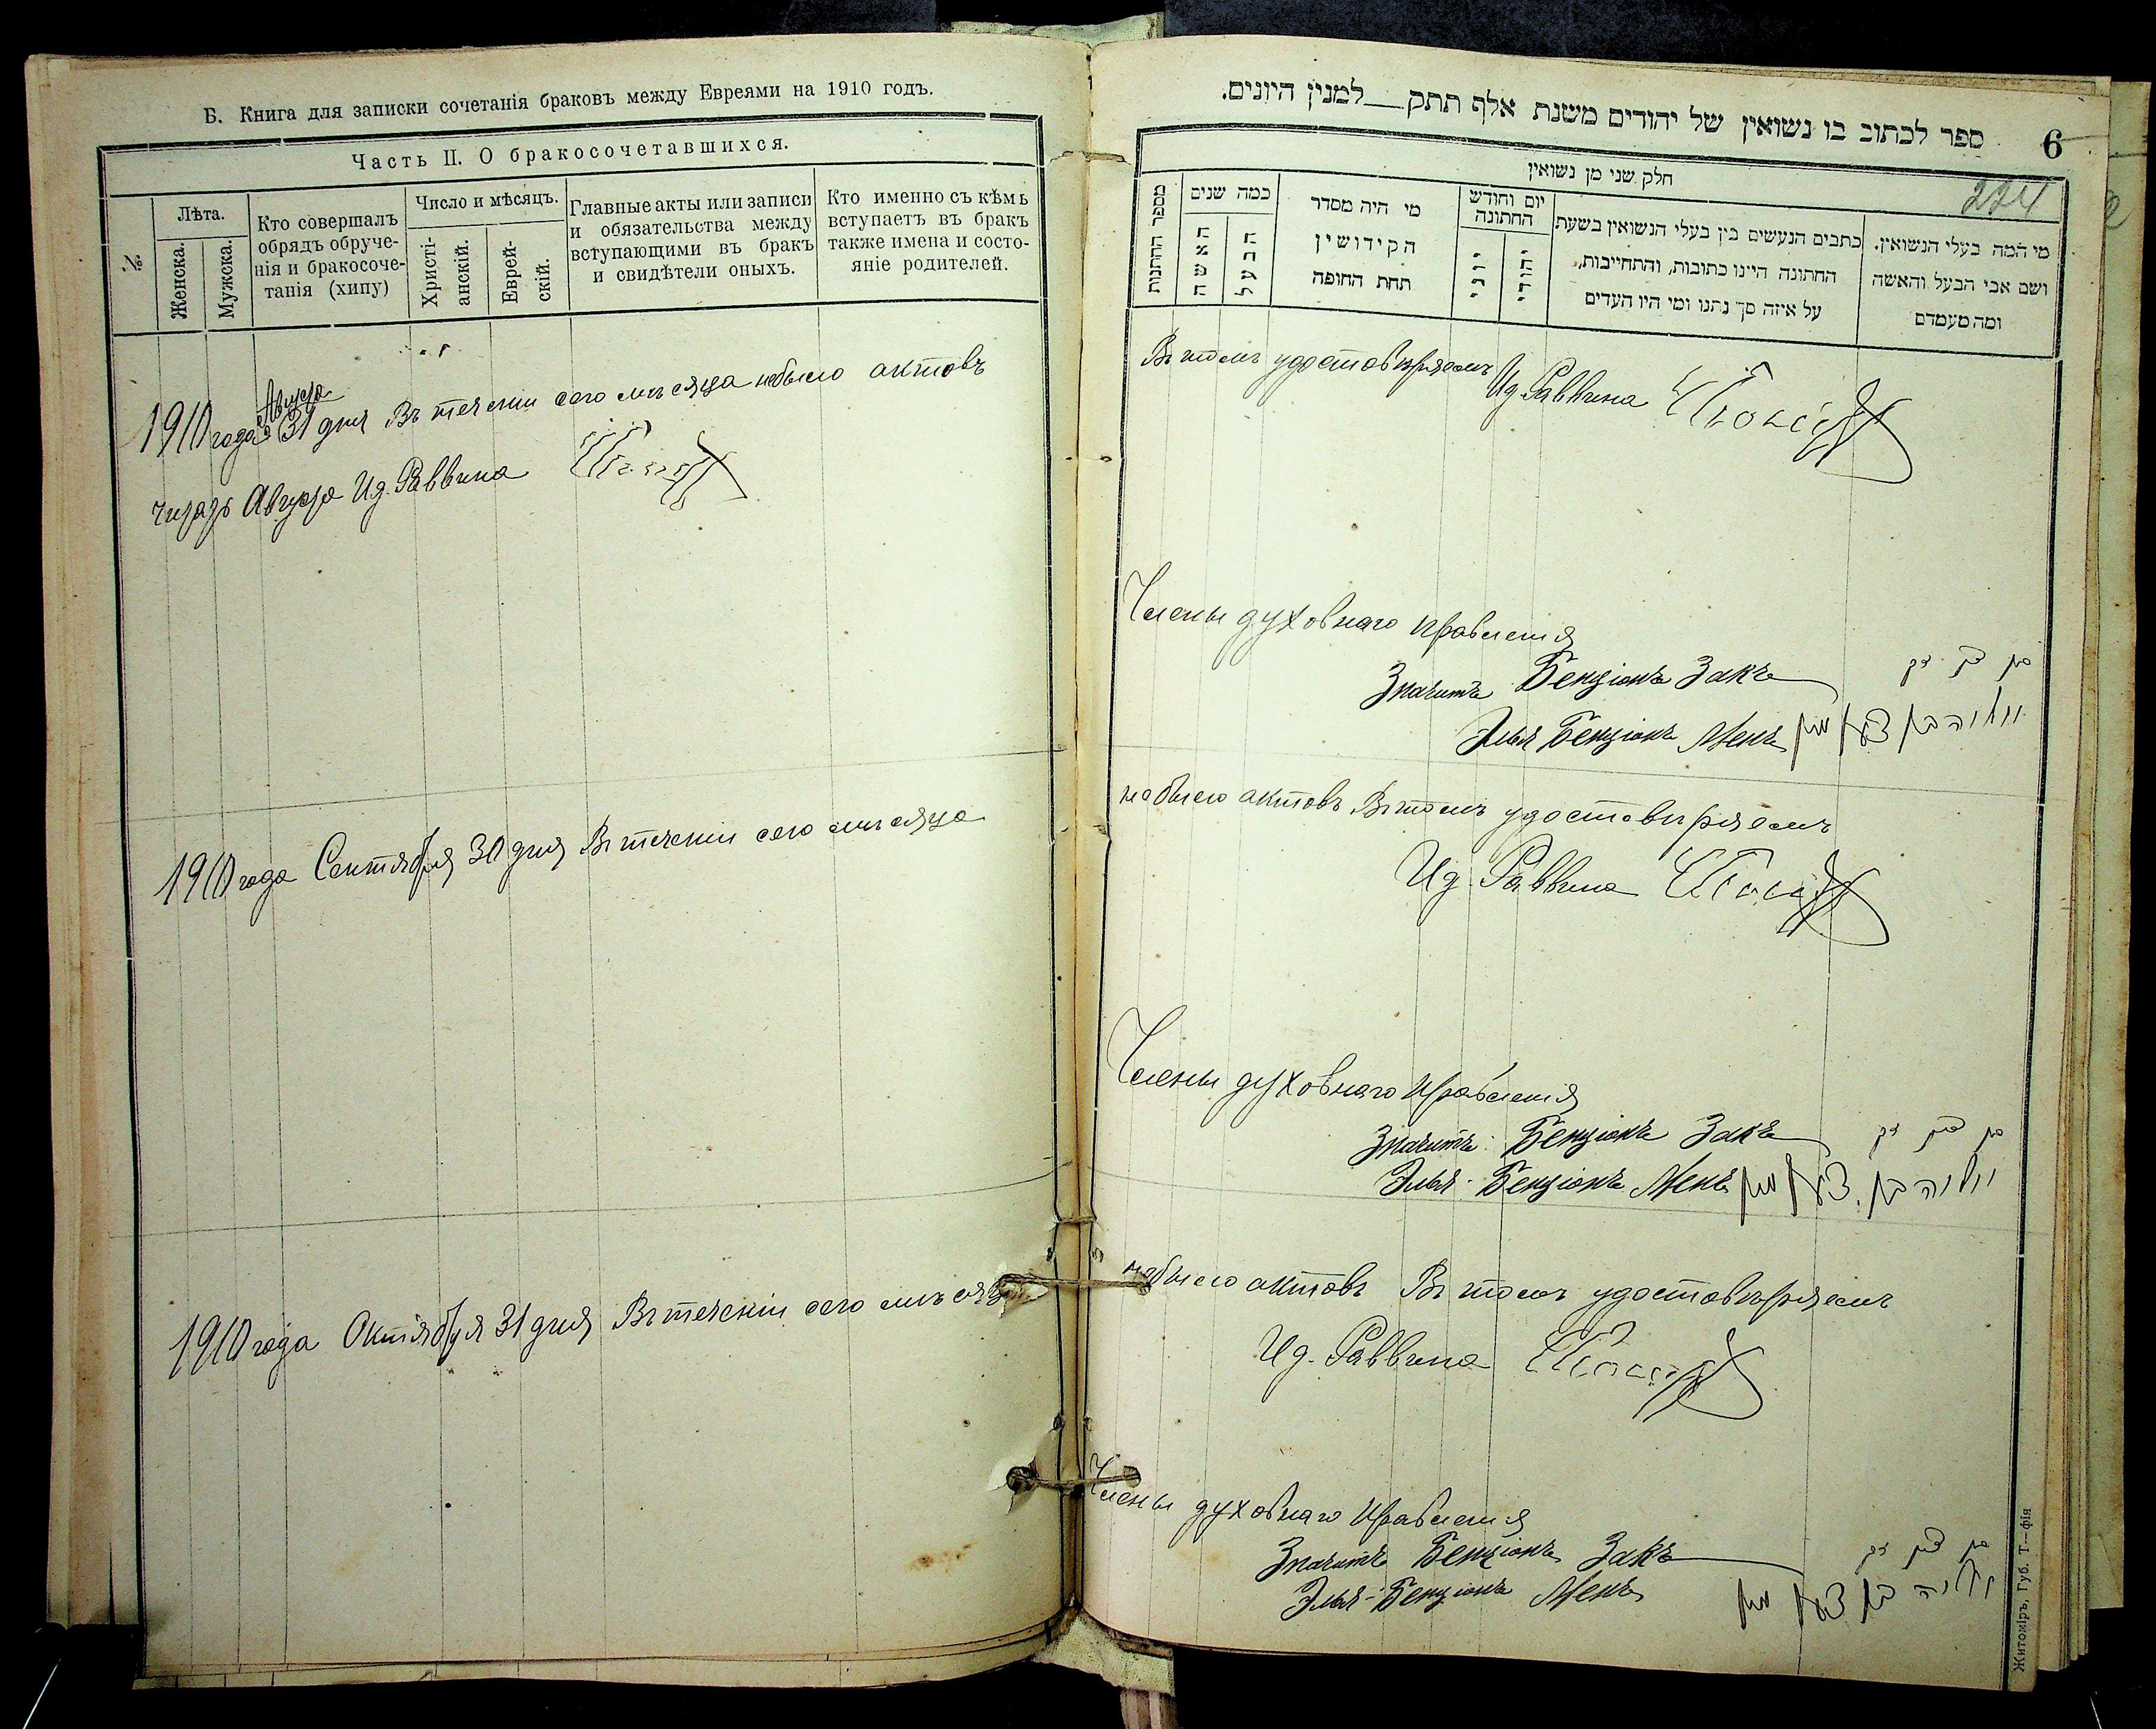 Б. Книга для записки сочетанія браковъ между Евреями на 1910 годъ.
Часть II. О бракосочетавшихся.
№
Лѣта.
Женска.
Мужска.
Кто совершалъ
обрядъ обруче-
нія и бракосоче-
танія (хипу)
Число и мѣсяцъ.
Христі-
анскій.
Еврей-
скій.
Главные акты или записи
и обязательства между
вступающими въ бракъ
и свидѣтели оныхъ.
Кто именно съ кѣмъ
вступаетъ въ бракъ
также имена и состо-
яніе родителей.
Августа
1910 года 31 дня Въ теченіи сего мѣсяца небыло актовъ
Августа Ид. Раввина
1910 года Сентября 30 дня Въ теченіи сего мѣсяца
1910 года Октября 31 дня Въ теченіи сего мѣсяца
ספר לכתוב בו נשואין של יהודים משנת אלף תתק__למנין היונים.
6
224
חלק שני מן נשואין
מספר החתונות
כמה שנים
האשה
הבעל
מי היה מסדר
הקידושין
תחת החופה
יום וחודש
החתונה
יוני
יהודי
כתבים הנעשים בין בעלי הנשואין בשעת
החתונה היינו כתובות, והתחייבות,
על איזה סך נתנו ומי היו העדים
מי המה בעלי הנשואין.
ושם אבי הבעל והאשה
ומה מעמדם
Въ томъ удостовѣряемъ
Ид. Раввина
Члены духовнаго правленія
Значитъ Бенціонъ Закъ
Элья Бенціонъ Менъ
небыло актовъ Въ томъ удостовѣряемъ
Ид. Раввина
Члены духовнаго Правленія
Значитъ Бенціонъ Закъ
Элья-Бенціонъ Менъ
небыло актовъ Въ томъ удостовѣряемъ
Ид. Раввина
Члены духовнаго Правленія
Значитъ Бенціонъ Закъ
Элья-Бенціонъ Менъ
Житоміръ, Губ. Т—фія